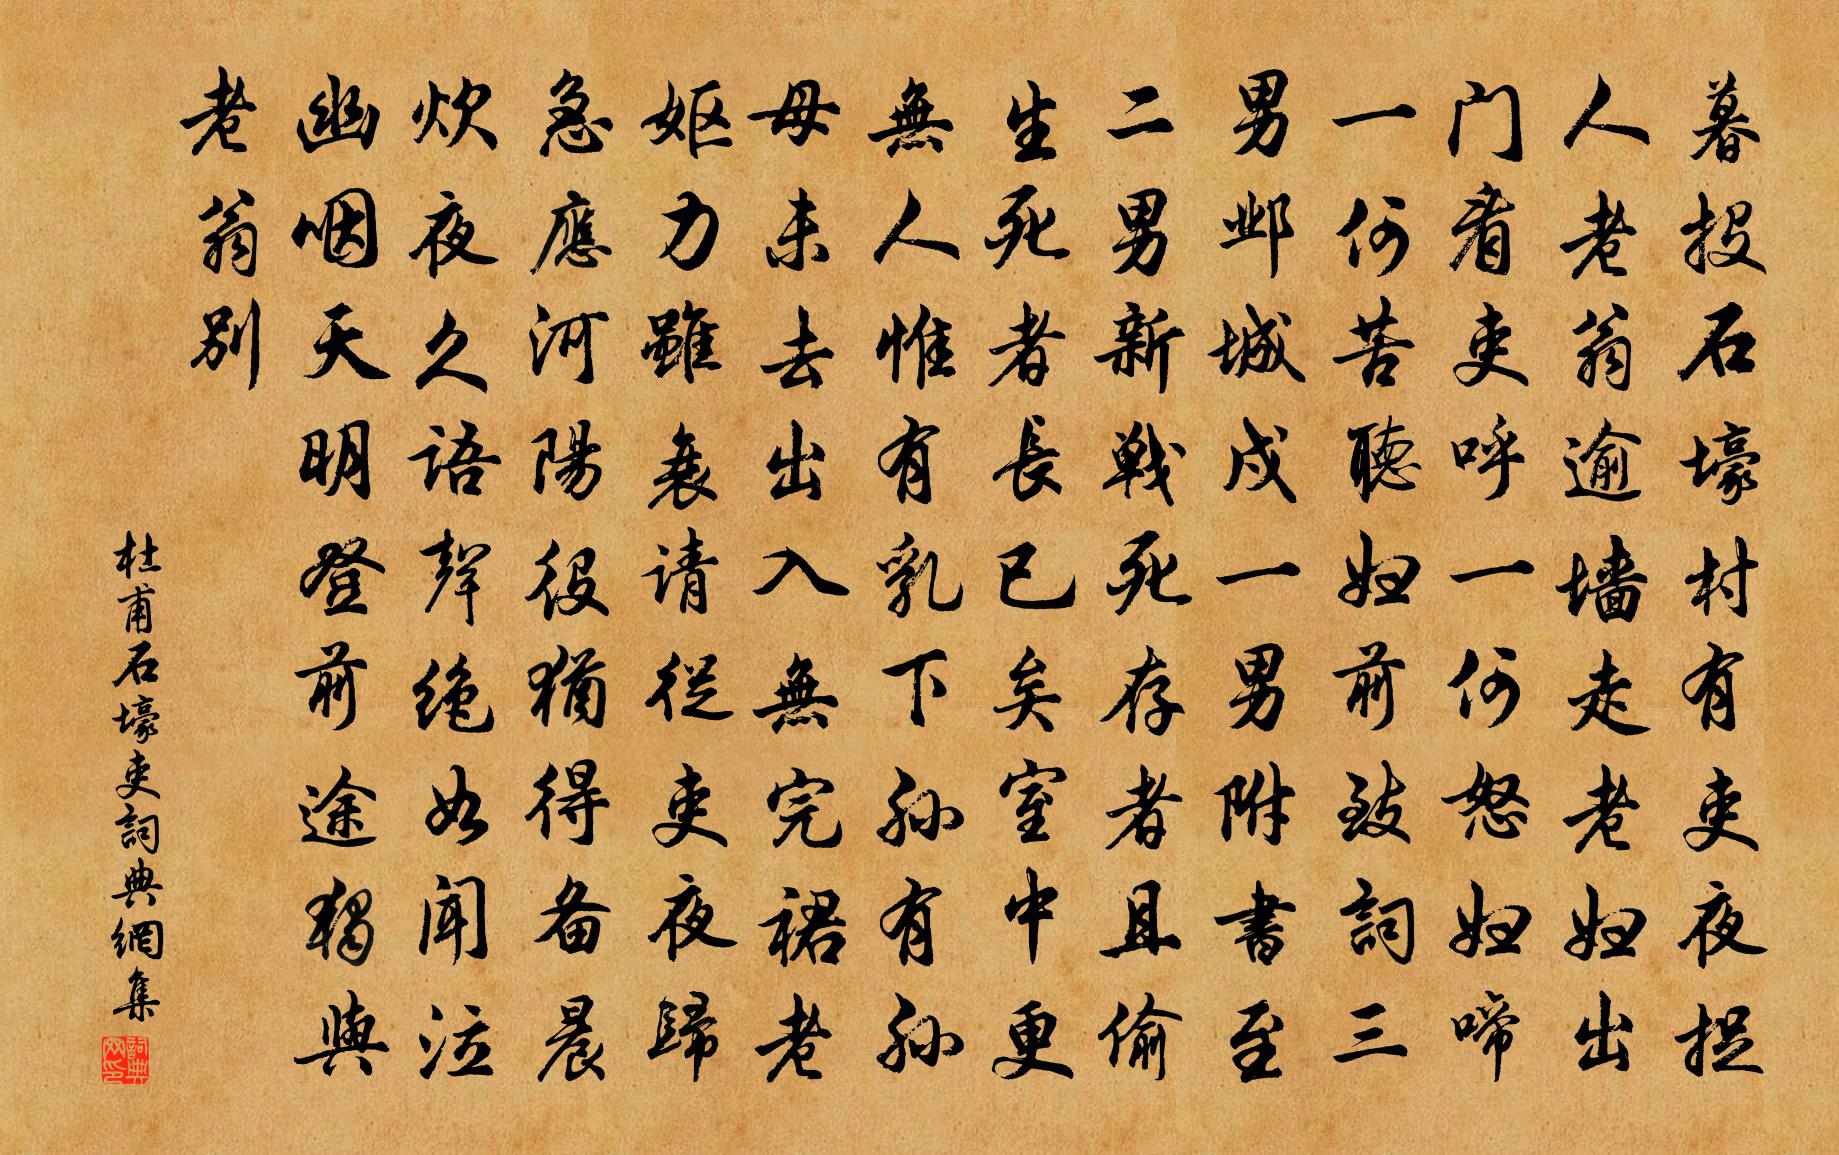 暮投石壕村有吏夜捉
人老翁逾墙走老妇出
门看吏呼一何怒妇啼
一何苦聽妇前致詞三
男邺城戍一男附書至
二男新戦死存者且偷
生死者長已矣室中更
無人惟有乳下孙有孙
母未去出入無完裙老
妪力雖衰请從吏夜歸
急應河陽役猶得备晨
炊夜久语聲绝如闻泣
幽咽天明登前途独與
老翁别
杜甫石壕吏詞典網集
詞典网印